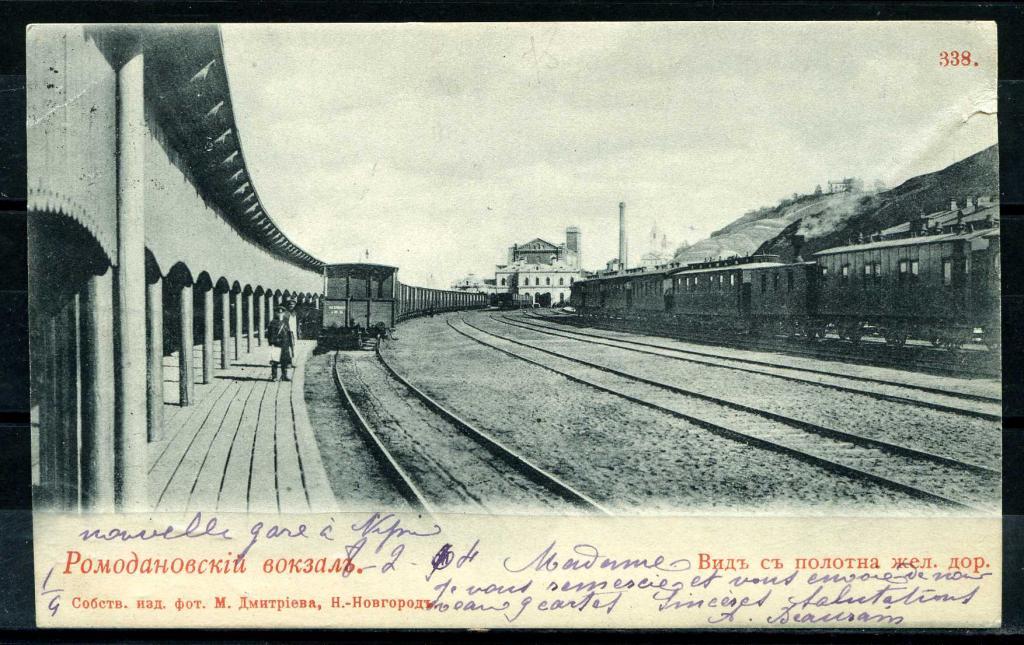 338.
nouvelle gare à
Ромодановскій вокзалъ.
8-2 04
Madame
Видъ съ полотна жел. дор.
Je vous remercie et vous envoie de nou
1/9
Собств. изд. фот. М. Дмитріева, Н.-Новгородъ.
veau 9 cartes Sincères Salutations
A.